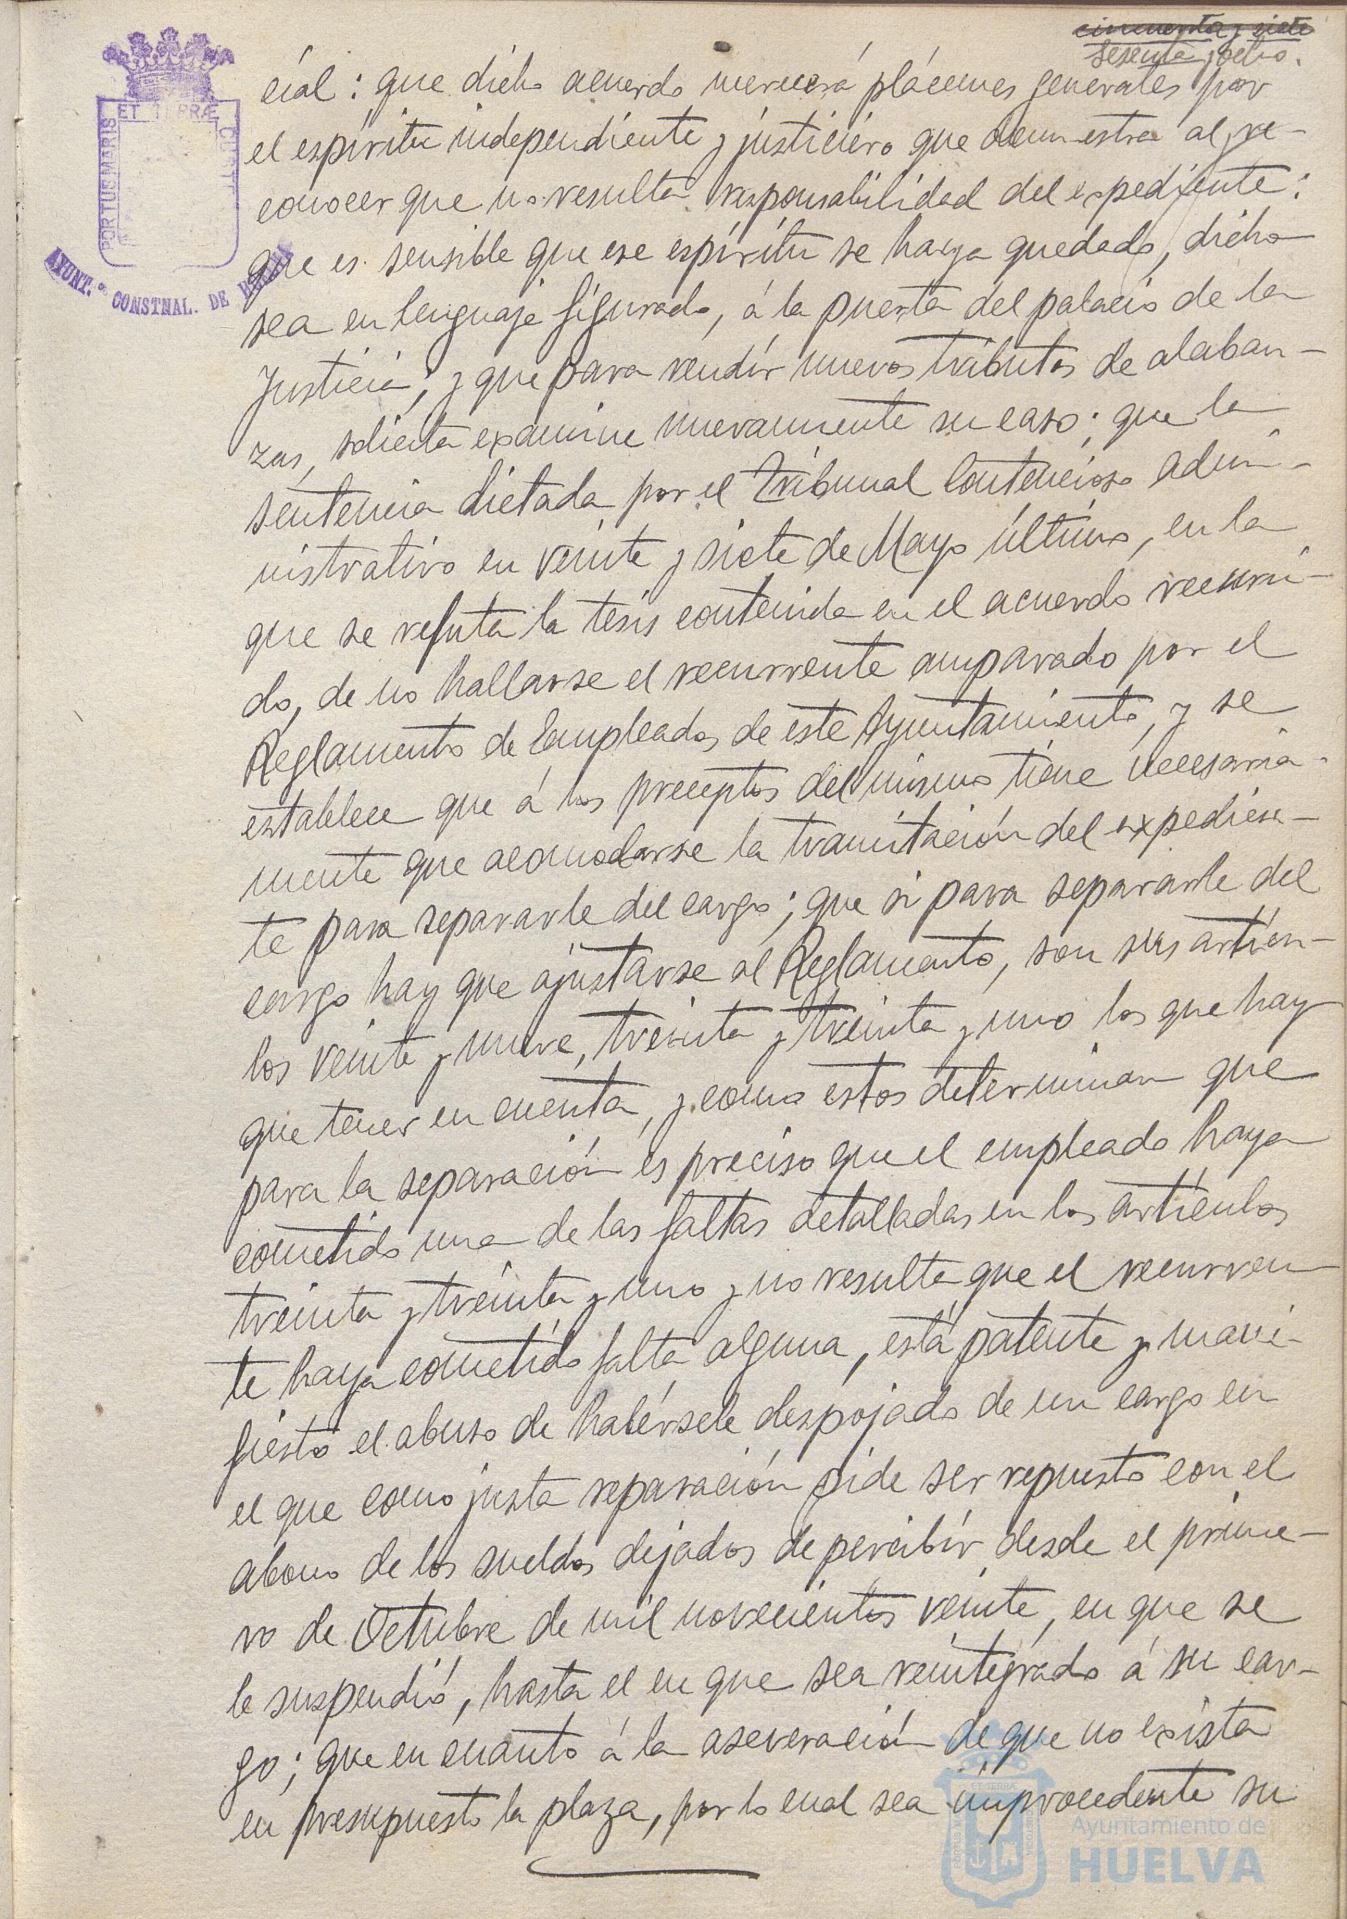 cincuenta y siete
Sesenta y ocho.
PORTUS MARIS
ET TERRÆ
CUSTO
AYUNT.º CONSTNAL. DE HUELVA
cial: que dicho acuerdo merecerá plácemes generales por
el espíritu independiente y justiciero que demuestra al re-
conocer que no resulta responsabilidad del expediente:
que es sensible que ese espíritu se haya quedado, dicho
sea en lenguaje figurado, á la puerta del palacio de la
Justicia, y que para rendir nuevos tributos de alaban-
zas, solicita examine nuevamente su caso; que la
sentencia dictada por el Tribunal Contencioso admi-
nistrativo en veinte y siete de Mayo último, en la
que se refuta la tesis contenida en el acuerdo recurri-
do, de no hallarse el recurrente amparado por el
Reglamento de Empleados de este Ayuntamiento, y se
establece que á los preceptos del mismo tiene necesaria-
mente que acomodarse la tramitación del expedien-
te para separarle del cargo; que si para separarle del
cargo hay que ajustarse al Reglamento, son sus artícu-
los veinte y nueve, treinta y treinta y uno los que hay
que tener en cuenta, y como estos determinan que
para la separación es preciso que el empleado haya
cometido una de las faltas detalladas en los artículos
treinta y treinta y uno y no resulta que el recurren
te haya cometido falta alguna, está patente y mani-
fiesto el abuso de habérsele despojado de un cargo en
el que como justa reparación pide ser repuesto con el
abono de los sueldos dejados de percibir desde el prime-
ro de Octubre de mil novecientos veinte, en que se
le suspendió, hasta el en que sea reintegrado á su car-
go; que en cuanto á la aseveración de que no exista
en presupuesto la plaza, por lo cual sea improcedente su
Ayuntamiento de
HUELVA